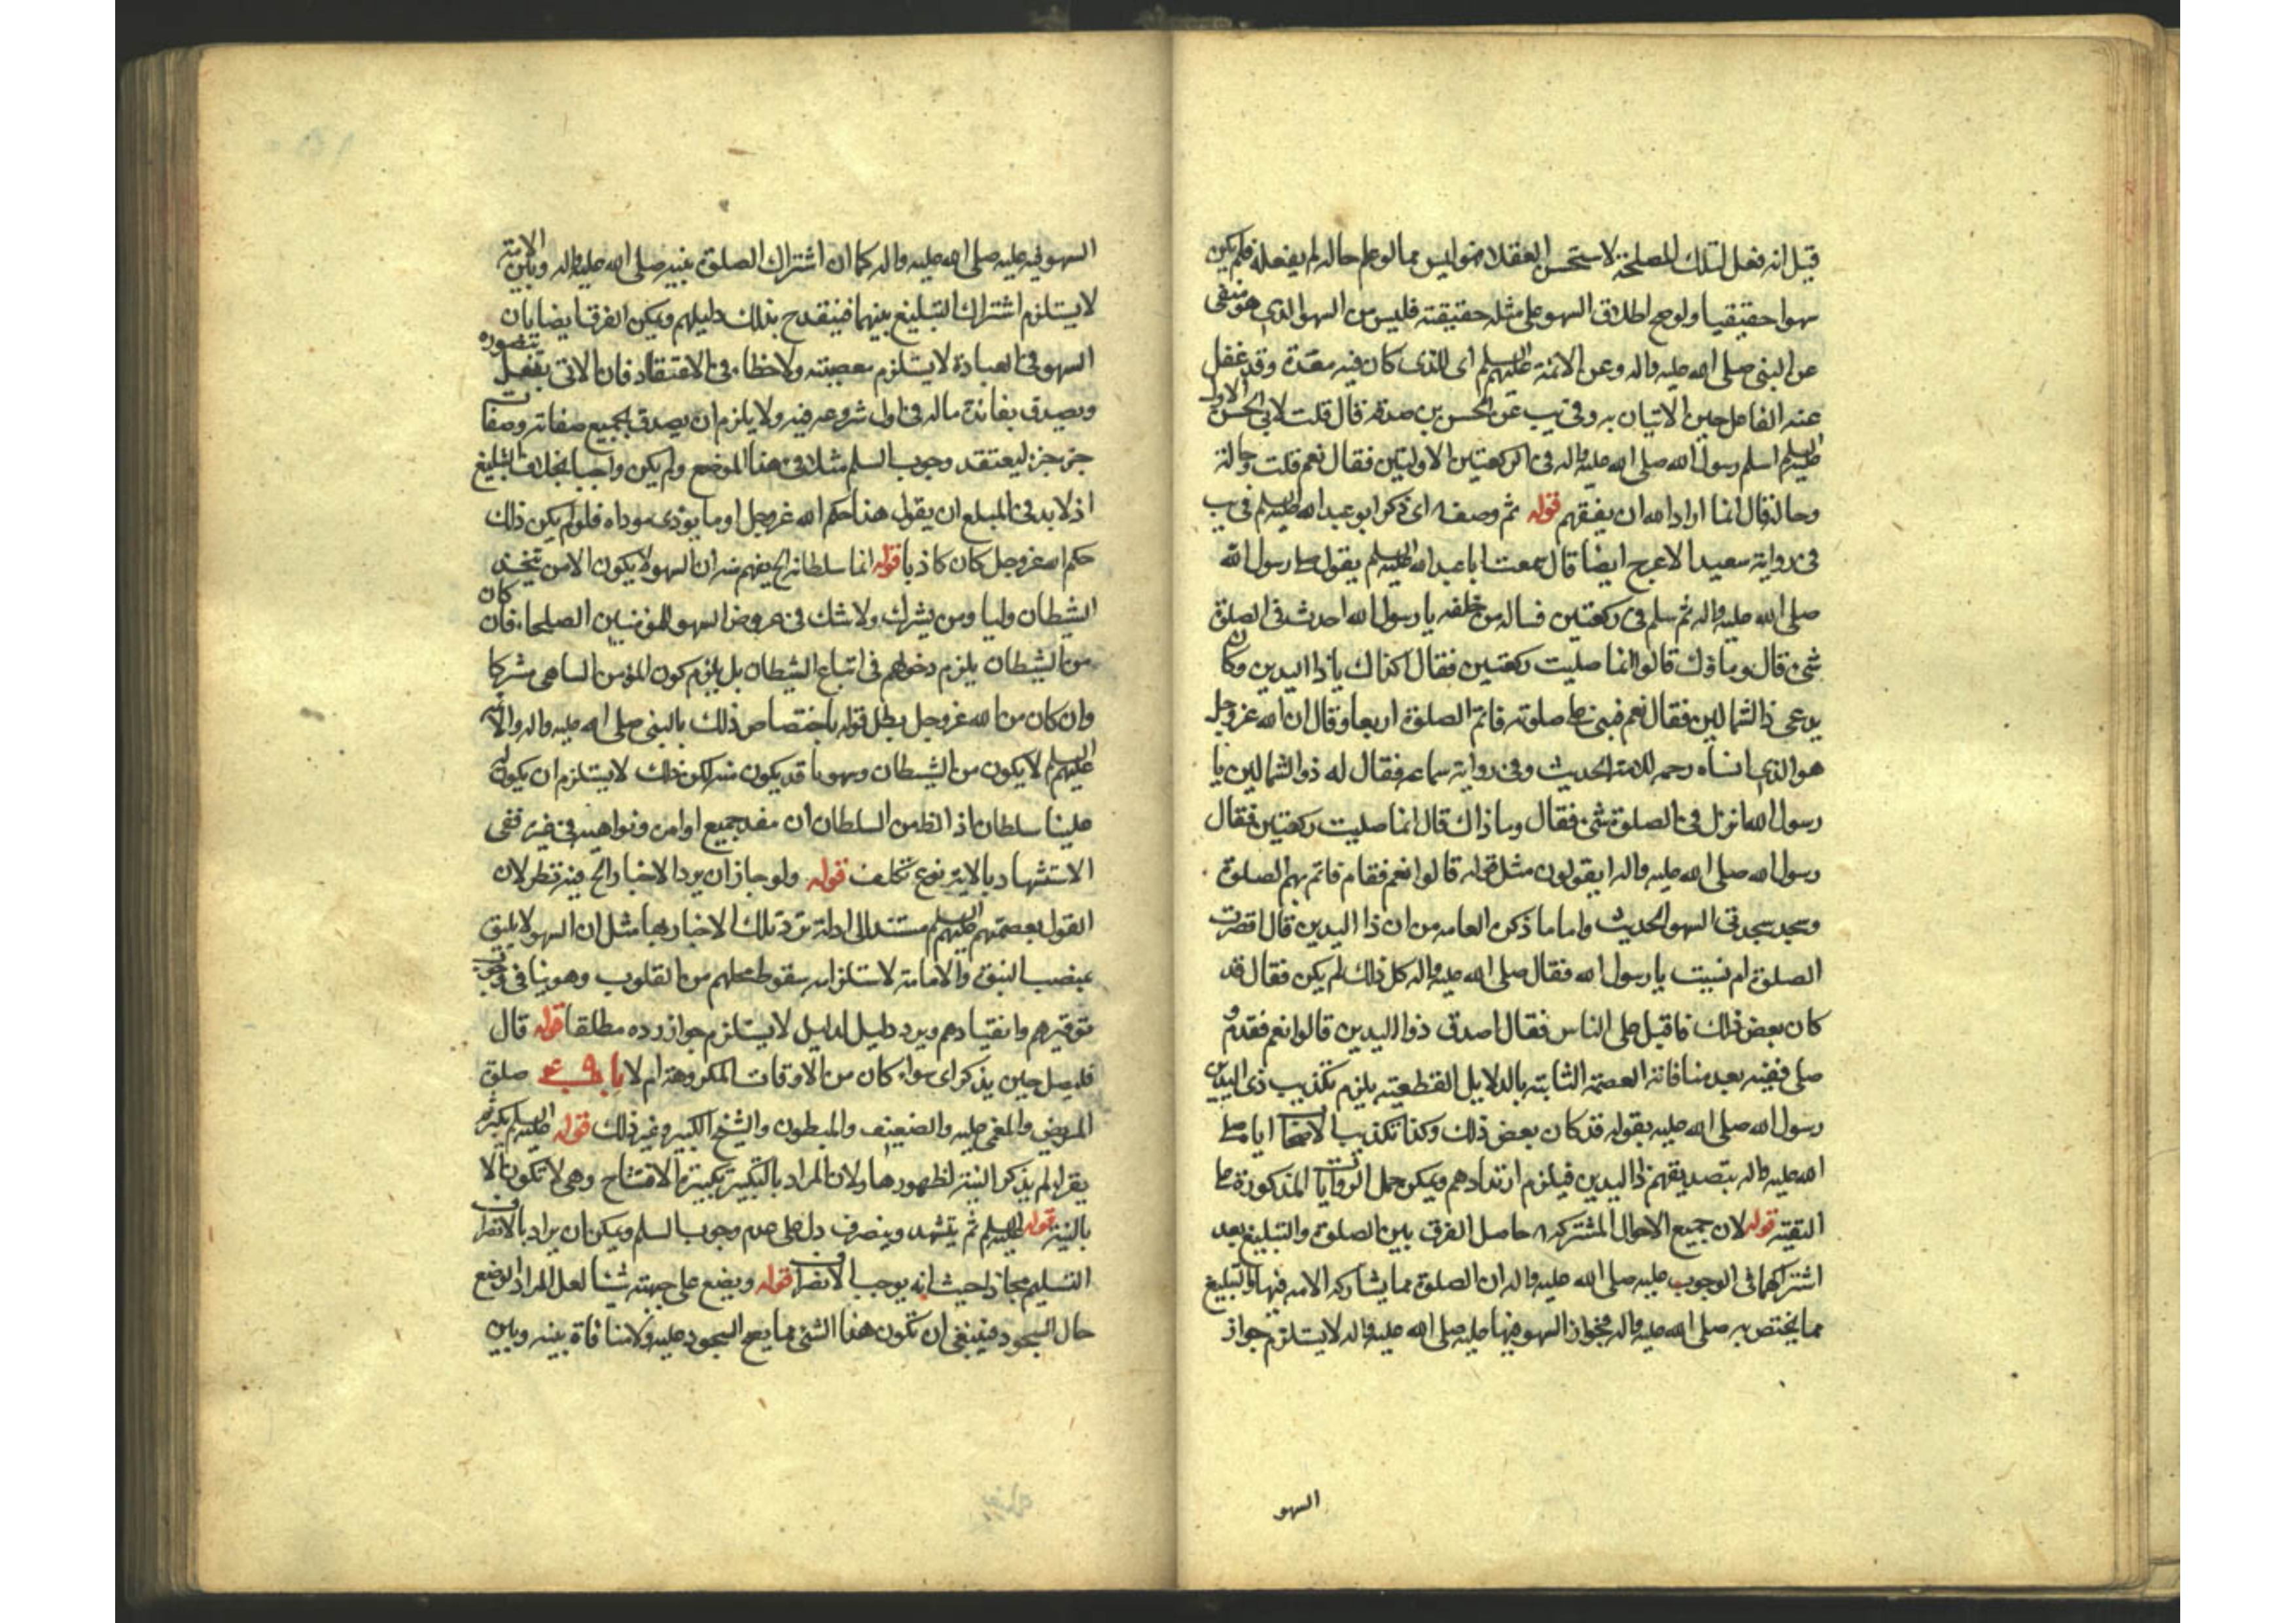 قيل انه فعل لتلك المصلحة لاستحسن العقلا فهو ليس مما لو علم حاله لم يفعله فلم يكن
سهوا حقيقيا ولو صح اطلاق السهو على مثله حقيقته فليس من السهو الذي هو منفى
عن النبى صلى الله عليه واله وعن الائمة عليهم السلم اى الذى كان فيه مفسدة وقد غفل
عنه الفاعل حين الاتيان به وفى يب عن الحسن بن صدقه قال قلت لابى الحسن الاول
عليه السلم اسلم رسول الله صلى الله عليه واله فى الركعتين الاولتين فقال نعم قلت وحاله
وحاله قال انما اراد الله ان يفقههم قوله ثم وصفه اى ذكر ابو عبد الله عليه السلم فى يب
فى رواية سعيد الاعرج ايضا قال سمعت ابا عبد الله عليه السلم يقول صلى رسول الله
صلى الله عليه واله ثم سلم فى ركعتين فساله من خلفه يا رسول الله احدث فى الصلوة
شئ قال وما ذلك قالوا انما صليت ركعتين فقال اكذاك يا ذا اليدين وكان
يدعى ذا الشمالين فقال نعم فبنى على صلوته فاتم الصلوة اربعا وقال ان الله عز وجل
هو الذى انساه رحمه للامة الحديث وفى رواية سماعه فقال له ذو الشمالين يا
رسول الله انزل فى الصلوة شئ فقال وما ذاك قال انما صليت ركعتين فقال
رسول الله صلى الله عليه واله ايقولون مثل قوله قالوا نعم فقام فاتم بهم الصلوة
وسجد سجدتى السهو الحديث واما ما ذكره العامه من ان ذا اليدين قال اقصرت
الصلوة ام نسيت يا رسول الله فقال صلى الله عليه واله كل ذلك لم يكن فقال قد
كان بعض ذلك فاقبل على الناس فقال اصدق ذو اليدين قالوا نعم فقدم و
صلى ففيه بعد منافاته العصمة الثابتة بالدلايل القطعية يلزم تكذيب ذى اليدين
رسول الله صلى الله عليه بقوله قد كان بعض ذلك وكذا تكذيب الاصحاب اياه صلى
الله عليه واله بتصديقهم ذا اليدين فيلزم ارتدادهم ويمكن حمل الروايات المذكورة على
التقية قوله لان جميع الاحوال المشتركه حاصل الفرق بين الصلوة والتبليغ بعد
اشتراكهما فى الوجوب عليه صلى الله عليه واله ان الصلوة مما يشاركه الامه فيها والتبليغ
مما يختص به صلى الله عليه واله فجواز السهو فيها عليه صلى الله عليه واله لا يستلزم جواز
السهو
السهو فيه عليه صلى الله عليه واله كما ان اشتراك الصلوة بينه صلى الله عليه واله وبين الامة
لا يستلزم اشتراك التبليغ بينهما فينقدح بذلك دليلهم ويمكن الفرق ايضا بان
السهو فى العبادة لا يستلزم معصيته ولا خطاء فى الاعتقاد فان الاتى بفعل يتصوره
ويصدق بفائدة ماله فى اول شروعه فيه ولا يلزم ان يصدق بجميع صفاته وصفات
جزء جزء ليعتقد وجوب السلم مثلا فى هذا الموضع ولم يكن واجبا بخلاف التبليغ
اذ لا بد فى المبلغ ان يقول هذا حكم الله عز وجل او ما يؤدى موداه فلو لم يكن ذلك
حكم الله عز وجل كان كاذبا قوله انما سلطانه الخ يفهم منه ان السهو لا يكون الا من يتخذ
الشيطان وليا ومن يشرك ولا شك فى عروض السهو للمؤمنين الصلحاء فان كان
من الشيطان يلزم دخولهم فى اتباع الشيطان بل يلزم كون المؤمن الساهى مشركا
وان كان من الله عز وجل بطل قوله باختصاص ذلك بالنبى صلى الله عليه واله والائمة
عليهم السلم لا يكون من الشيطان وسهونا قد يكون منه لكن ذلك لا يستلزم ان يكون له
علينا سلطان اذ الظ من السلطان ان جميع اوامره ونواهيه فى غيره ففى
الاستشهاد بالاية نوع تكلف قوله ولو جاز ان يرد الاخبار الخ فيه نظر لان
القول بعصمتهم عليهم السلم مستند الى ادلة ترد تلك الاخبار بها مثل ان السهو لا يليق
بمنصب النبوة والامامة لاستلزامه سقوط محلهم من القلوب وهو ينافى وجوب
توقيرهم وانقيادهم ويرد دليل لدليل لا يستلزم جواز رده مطلقا قوله قال
فليصل حين يذكر اى سواء كان من الاوقات المكروهة ام لا باب صلوة
المريض والمغمى عليه والضعيف والمبطون والشيخ الكبير وغير ذلك قوله عليه السلم يكبر ثم
يقرا لم يذكر النية لظهورها ولان المراد بالتكبير تكبيرة الافتتاح وهى لا تكون الا
بالنية قوله عليه السلم ثم يتشهد وينصرف دل على عدم وجوب السلم ويمكن ان يراد بالانصراف
التسليم مجازا حيث انه يوجب الانصراف قوله ويضع على جبهته شيئا لعل المراد الوضع
حال السجود فينبغى ان تكون هذا الشئ مما يصح السجود عليه ولا منافاة بينه وبين